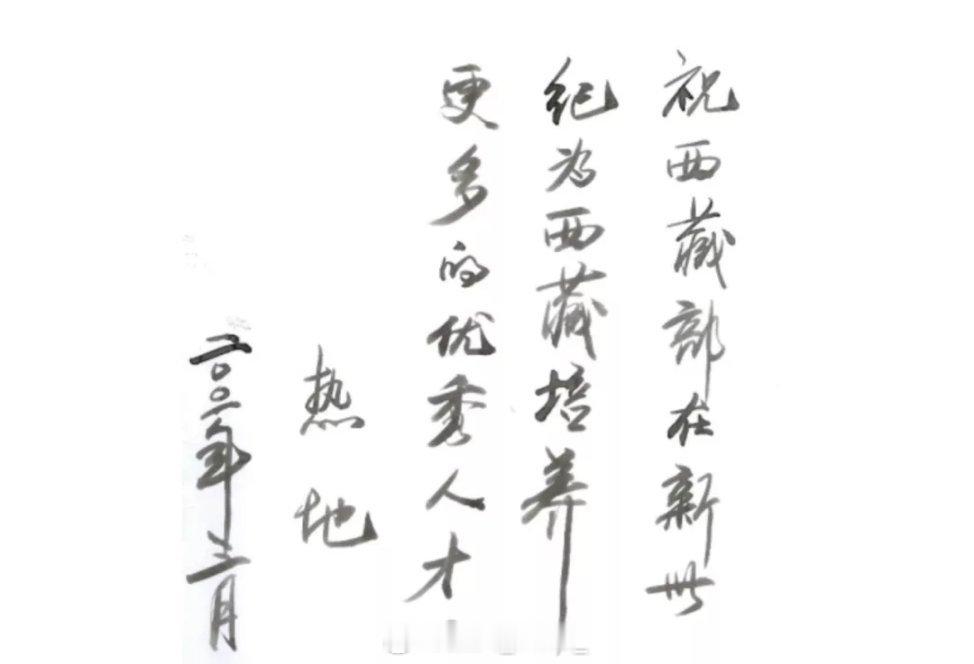 祝西藏部在新世
纪为西藏培养
更多的优秀人才
热地
二〇〇二年三月